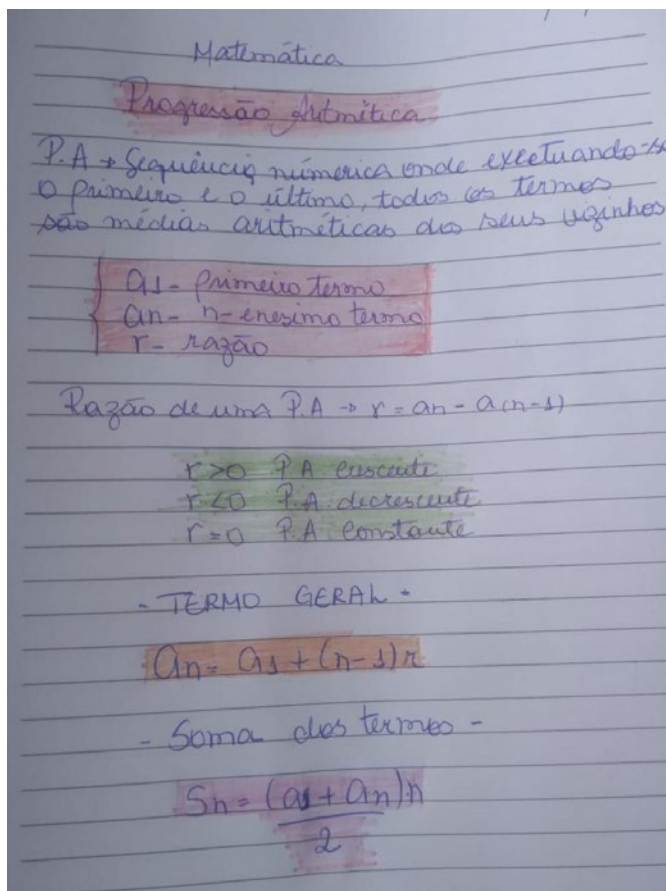 Matemática
Progressão Aritmética
P.A → Sequência númerica onde excetuando-se
o primeiro e o último, todos os termos
são médias aritméticas dos seus vizinhos
a1 - Primeiro termo
an - n-enesimo termo
r - razão
Razão de uma P.A → r = an - a(n-1)
r>0 P.A crescente
r<0 P.A. decrescente
r=0 P.A constante
- TERMO GERAL -
an = a1 + (n-1)r
- Soma dos termos -
Sn = (a1 + an)n
2